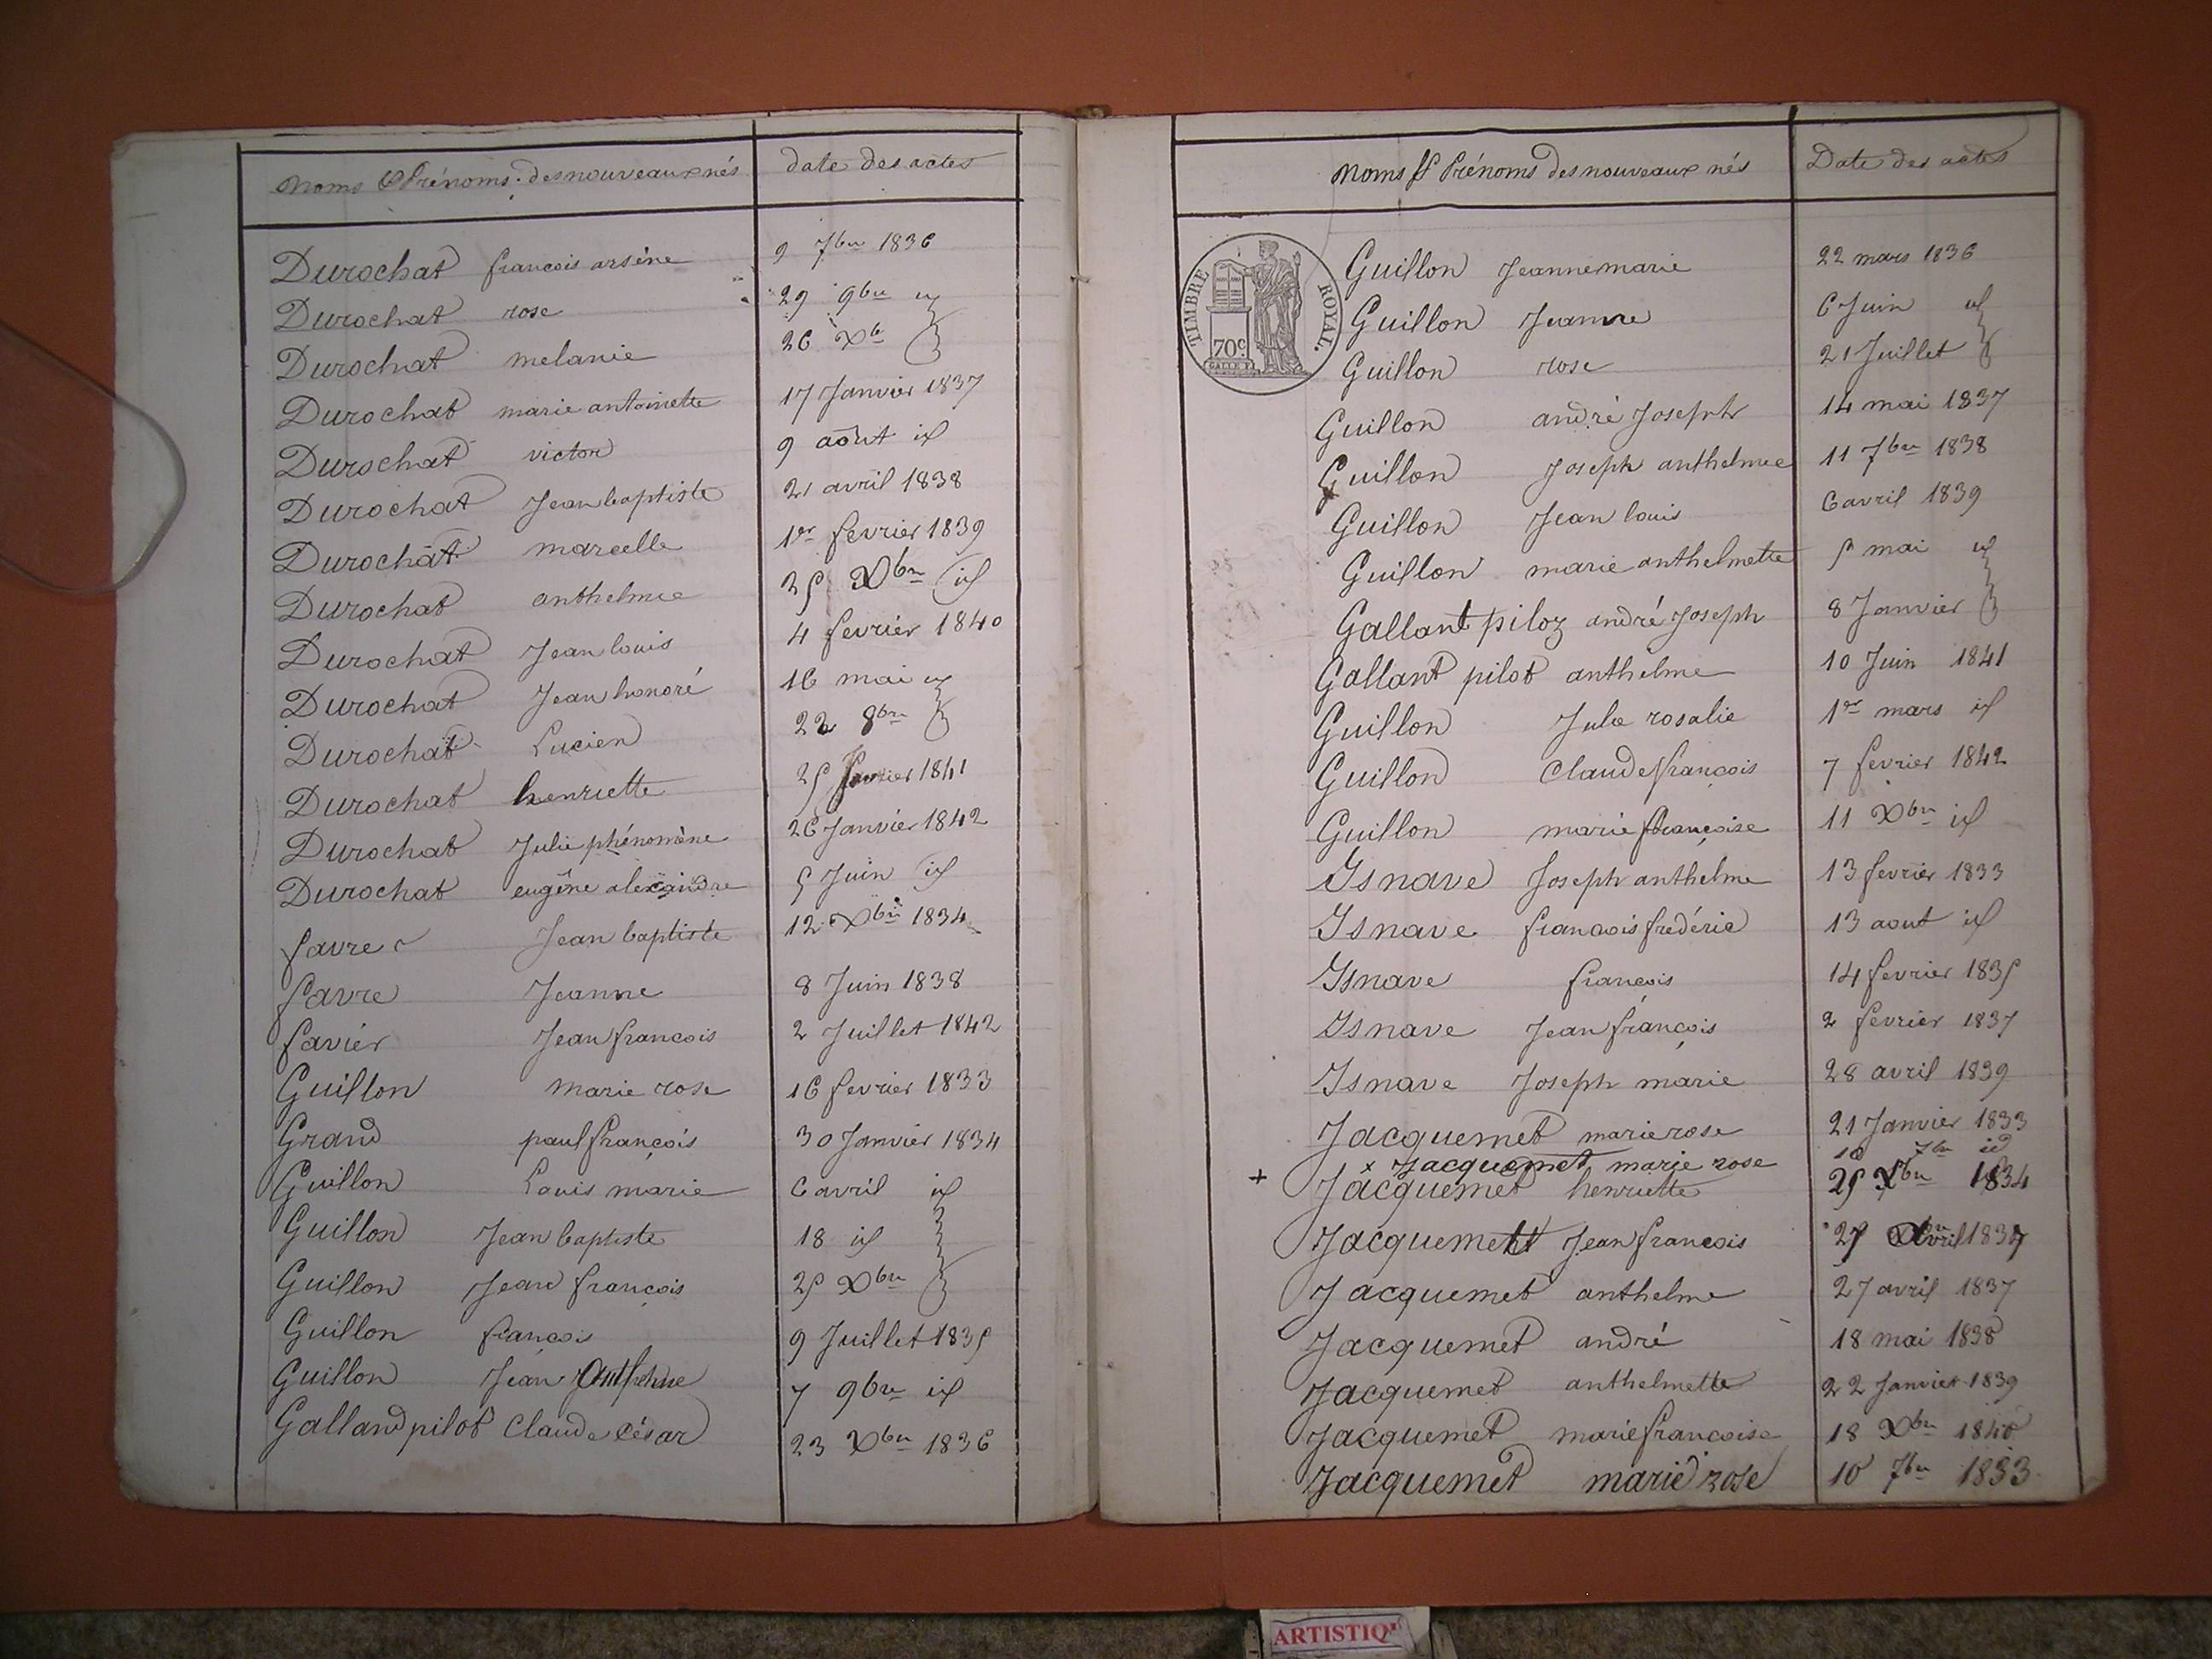 Noms & Prénoms des nouveaux nés date des actes
Durochat francois arsène 9 7bre 1836
Durochat rose 29 9bre id
Durochat melanie 26 Xbre
Durochat marie antoinette 17 Janvier 1837
Durochat victor 9 août id
Durochat Jean baptiste 21 avril 1838
Durochat marcelle 1er fevrier 1839
Durochat anthelme 25 Xbre id
Durochat Jean louis 4 fevrier 1840
Durochat Jean honoré 16 mai id
Durochat Lucien 22 8bre
Durochat henriette 25 1841
Durochat Julie phénomène 26 Janvier 1842
Durochat eugène alexandre 5 Juin id
favre Jean baptiste 12 Xbre 1834
favre Jeanne 8 Juin 1838
favier Jean francois 2 Juillet 1842
Guillon marie rose 16 fevrier 1833
Grand paul françois 30 Janvier 1834
Guillon Louis marie 6 avril id
Guillon Jean baptiste 18 id
Guillon Jean françois 25 Xbre
Guillon francois 9 Juillet 1835
Guillon Jean anthelme 7 9bre id
Galland pilot Claude César 23 Xbre 1836
Noms & Prénoms des nouveaux nés Date des actes
TIMBRE ROYAL
70c.
Guillon Jeanne marie 22 mars 1836
Guillon Jeanne 6 Juin id
Guillon rose 21 Juillet
Guillon andré Joseph 14 mai 1837
Guillon Joseph anthelme 11 7bre 1838
Guillon Jean louis 6 avril 1839
Guillon marie anthelmette 5 mai id
Gallant piloz andré Joseph 8 Janvier
Gallant pilot anthelme 10 Juin 1841
Guillon Julie rosalie 1er mars id
Guillon Claude françois 7 fevrier 1842
Guillon marie françoise 11 Xbre id
Isnave Joseph anthelme 13 fevrier 1833
Isnave francois frédéric 13 aout id
Isnave francois 14 fevrier 1835
Isnave Jean françois 2 fevrier 1837
Isnave Joseph marie 28 avril 1839
Jacquemet marie rose 21 Janvier 1833
+ x Jacquemet marie rose 10 7bre id
Jacquemet henriette 25 Xbre 1834
Jacquemet Jean francois 27 avril 1837
Jacquemet anthelme 27 avril 1837
Jacquemet andré 18 mai 1838
Jacquemet anthelmette 22 Janvier 1839
Jacquemet marie francoise 18 Xbre 1840
Jacquemet marie rose 10 7bre 1833
ARTISTIQ